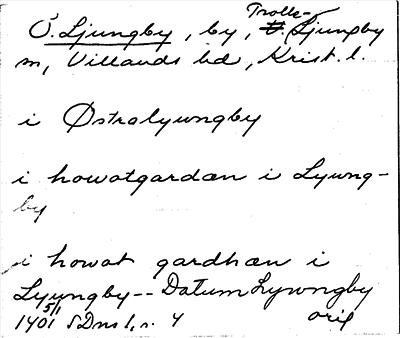 Ö. Ljungby, by, Trolle-Ljungby
sn, Villands hd, Krist. l.
i Østralyungby
i howatgardæn i Lyung-
by
i howat gardhæn i
Lyungby -- Datum Lywngby
1401 5/1 SDns 1, s. 4 orig